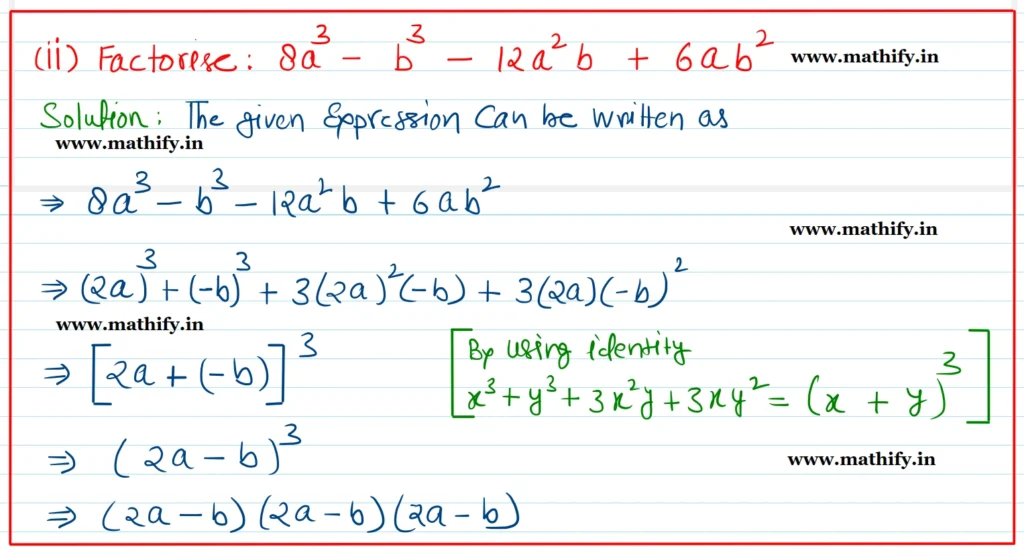 (ii) Factorise: 8a³ - b³ - 12a²b + 6ab² www.mathify.in
Solution: The given Expression Can be written as
www.mathify.in
⇒ 8a³ - b³ - 12a²b + 6ab²
www.mathify.in
⇒ (2a)³ + (-b)³ + 3(2a)²(-b) + 3(2a)(-b)²
www.mathify.in
⇒ [2a + (-b)]³
[By using identity
x³ + y³ + 3x²y + 3xy² = (x + y)³]
⇒ (2a - b)³
www.mathify.in
⇒ (2a - b)(2a - b)(2a - b)